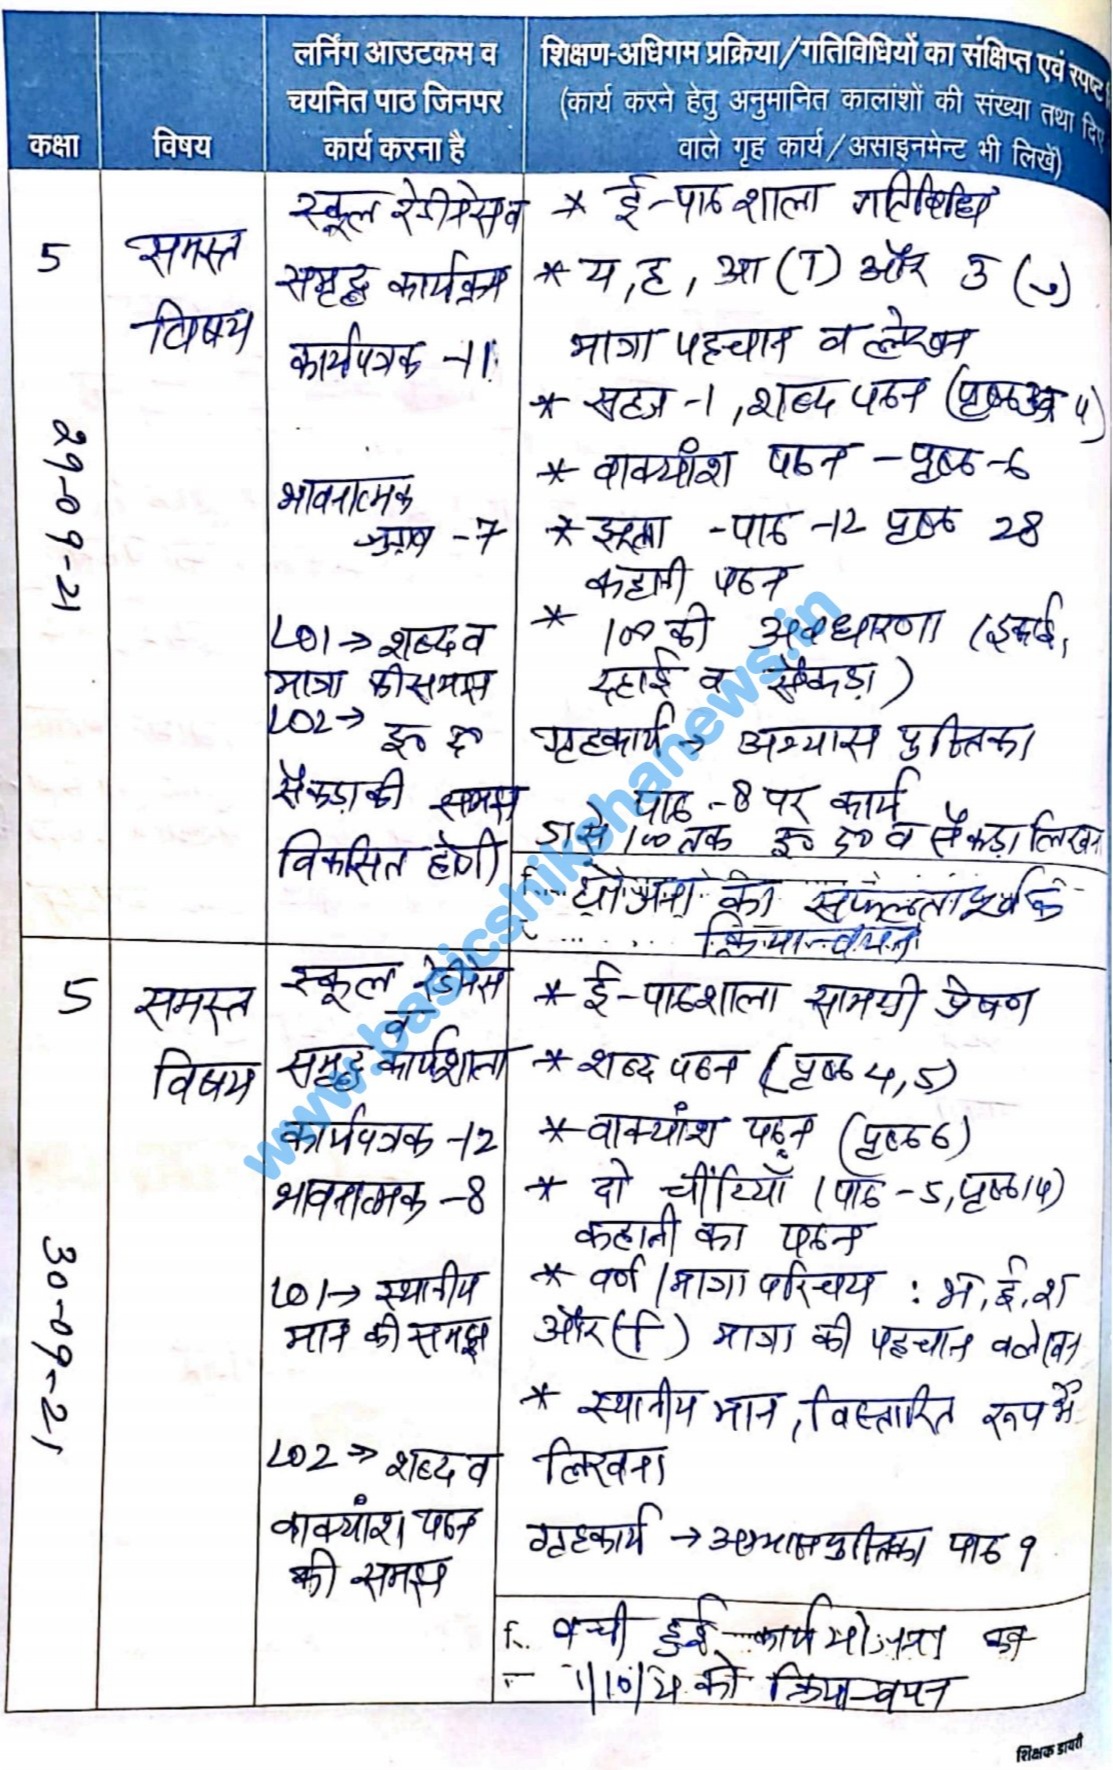 कक्षा
विषय
लर्निंग आउटकम व
चयनित पाठ जिनपर
कार्य करना है
शिक्षण-अधिगम प्रक्रिया/गतिविधियों का संक्षिप्त एवं स्पष्ट
(कार्य करने हेतु अनुमानित कालांशों की संख्या तथा दिए
वाले गृह कार्य/असाइनमेन्ट भी लिखें)
5
29-09-21
समस्त
विषय
स्कूल रेडीनेस व
समृद्ध कार्यक्रम
कार्यपत्रक -11
भावनात्मक
-7
LO1→ शब्द व
मात्रा की समझ
LO2→ इ० द०
सैकड़ा की समझ
विकसित होगी
* ई-पाठशाला गतिविधि
* य, ह, आ (ा) और उ (ु)
मात्रा पहचान व लेखन
* सहज -1, शब्द पठन (पृष्ठ 4)
* वाक्यांश पठन -पृष्ठ-6
* झूला -पाठ -12 पृष्ठ 28
कहानी पठन
* 100 की अवधारणा (इकाई,
दहाई व सैकड़ा)
गृहकार्य → अभ्यास पुस्तिका
पाठ -8 पर कार्य
51 से 100 तक इ० द० व सैकड़ा लिखना
योजना की सफलतापूर्वक
क्रियान्वयन
5
30-09-21
समस्त
विषय
स्कूल रेडीनेस
व
समृद्ध कार्यशाला
कार्यपत्रक -12
भावनात्मक -8
LO1→ स्थानीय
मान की समझ
LO2→ शब्द व
वाक्यांश पठन
की समझ
* ई-पाठशाला सामग्री प्रेषण
* शब्द पठन (पृष्ठ 4,5)
* वाक्यांश पठन (पृष्ठ 6)
* दो चींटियाँ (पाठ -5, पृष्ठ 14)
कहानी का पठन
* वर्ण/मात्रा परिचय : भ, ई, श
और (ि) मात्रा की पहचान व लेखन
* स्थानीय मान, विस्तारित रूप में
लिखना
गृहकार्य → अभ्यास पुस्तिका पाठ 9
बची हुई कार्य योजना का
को क्रियान्वयन
शिक्षक डायरी
www.basicshikshanews.in